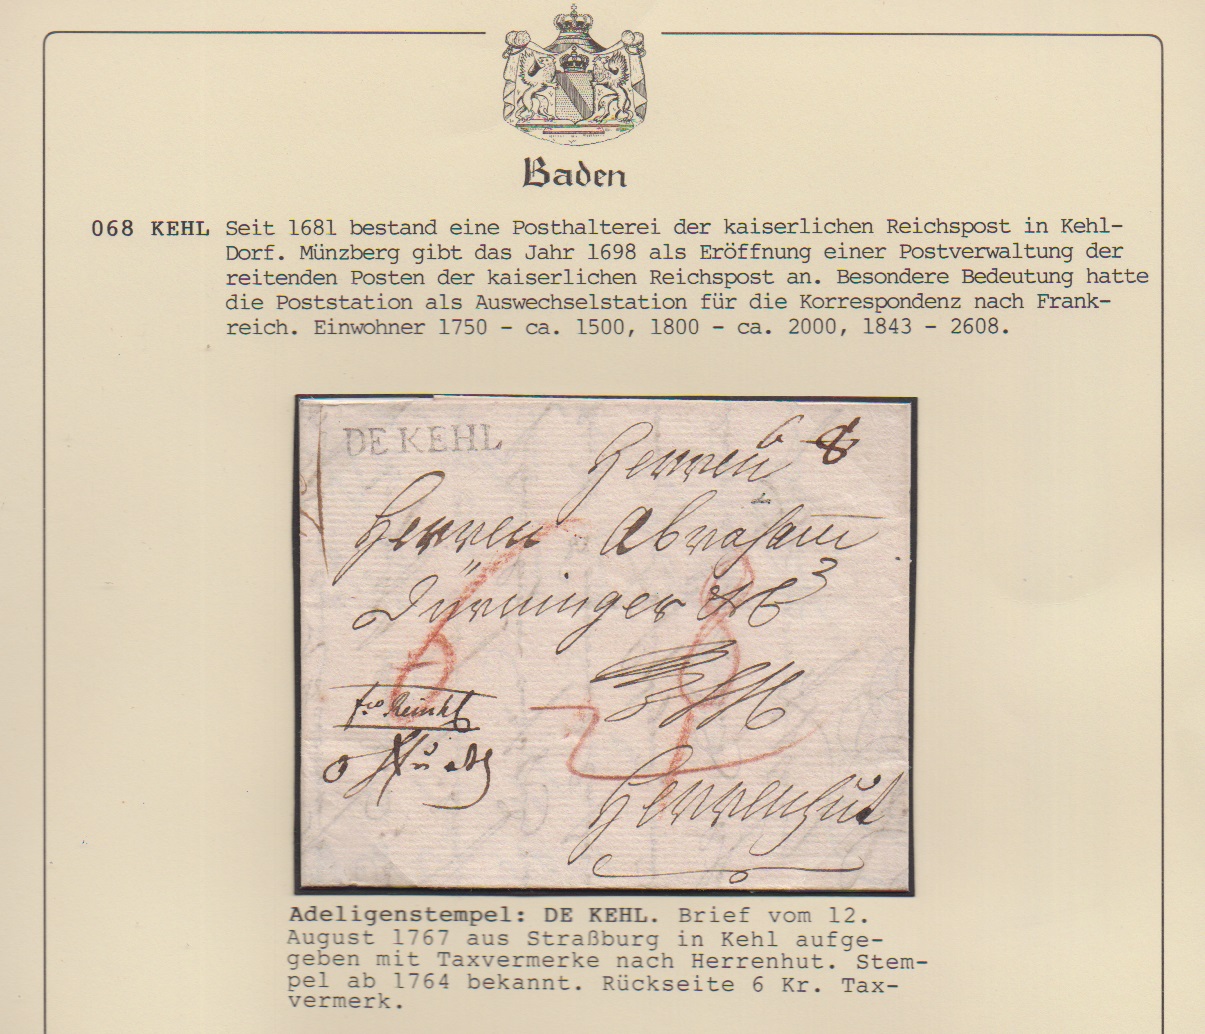 Baden
068 KEHL Seit 1681 bestand eine Posthalterei der kaiserlichen Reichspost in Kehl-
Dorf. Münzberg gibt das Jahr 1698 als Eröffnung einer Postverwaltung der
reitenden Posten der kaiserlichen Reichspost an. Besondere Bedeutung hatte
die Poststation als Auswechselstation für die Korrespondenz nach Frank-
reich. Einwohner 1750 - ca. 1500, 1800 - ca. 2000, 1843 - 2608.
DE KEHL
Herren
Herren Abraham
Dürninger
Herrenhut
Adeligenstempel: DE KEHL. Brief vom 12.
August 1767 aus Straßburg in Kehl aufge-
geben mit Taxvermerke nach Herrenhut. Stem-
pel ab 1764 bekannt. Rückseite 6 Kr. Tax-
vermerk.